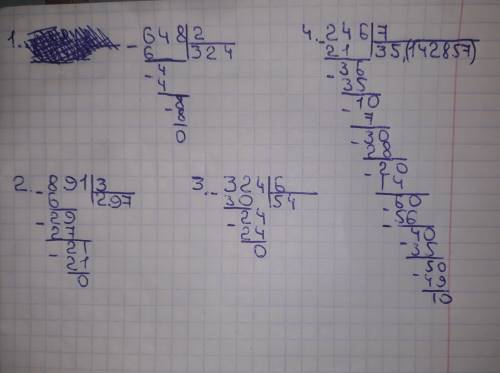 1. - 648 | 2
6 | 324
- 4
4
- 8
8
0
2. - 891 | 3
6 | 297
- 29
27
- 21
21
0
3. - 324 | 6
30 | 54
- 24
24
0
4. - 246 | 7
21 | 35,(142857)
- 36
35
- 10
7
- 30
28
- 20
14
- 60
56
- 40
35
- 50
49
10